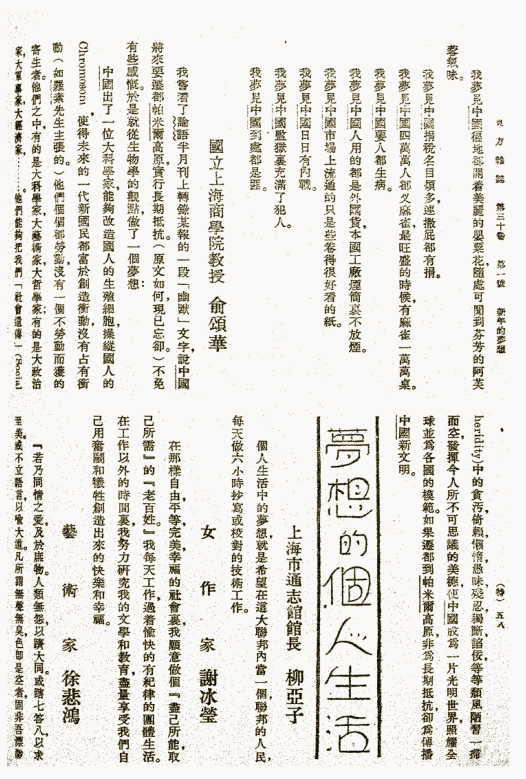 東方雜誌　第三十卷　第一號　新年的夢想　（特）五八
我夢見中國遍地都開着美麗的罌粟花隨處可聞到芬芳的阿芙
蓉氣味。
我夢見中國捐稅名目頗多連撒屁都有捐。
我夢見中國四萬萬人都叉麻雀最旺盛的時候有麻雀一萬萬桌。
我夢見中國要人都生病。
我夢見中國人用的都是外國貨本國工廠煙筒裏不放煙。
我夢見中國市場上流通的只是些卷得很好看的紙。
我夢見中國日日有內戰。
我夢見中國監獄裏充滿了犯人。
我夢見中國到處都是匪。
國立上海商學院教授　俞頌華
我嘗看了論語半月刊上轉錄某報的一段「幽默」文字，說中國
將來要遷都帕米爾高原，實行長期抵抗（原文如何現已忘卻）不免
有些感慨，於是就從生物學的觀點，做了一個夢想：
中國出了一位大科學家，能夠改造國人的生殖細胞，操縱國人的
Chromosom，使得未來的一代新國民都富於創造衝動，沒有占有衝
動（如羅素先生主張的）他們個個都勞動，沒有一個不勞動而獲的
寄生者。他們之中，有的是大科學家，大藝術家，大哲學家；有的是大政治
家，大軍事家，大經濟家……他們能夠把我們「社會遺傳」（Social
heridity）中的貪汚倚賴，懶惰愚昧，殘忍獨斷，諂佞，等等頹風陋習一掃
而空，發揮今人所不可思議的美德，使中國成爲一片光明世界，照耀全
球，並爲各國的模範。如果遷都到帕米爾高原，非爲長期抵抗，卻爲傳播
中國新文明。
夢想的個人生活
上海市通志館館長　柳亞子
個人生活中的夢想，就是希望在這大聯邦內當一個聯邦的人民，
每天做六小時抄寫或校對的技術工作。
女作家　謝冰瑩
在那樣自由，平等，完美，幸福的社會裏，我願意做個『盡己所能，取
己所需』的『老百姓』，我每天工作，過着愉快的有紀律的團體生活。
在工作以外的時間裏，我努力研究我的文學和教育，盡量享受我們自
己用奮鬭和犧牲創造出來的快樂和幸福。
藝術家　徐悲鴻
『若乃同情之愛，及於庶物，人類無怨，以躋大同。或瞎七答八，以求
至美；或不立語言，以喻大道。凡所謂無聲無臭色卽是空者，固非吾